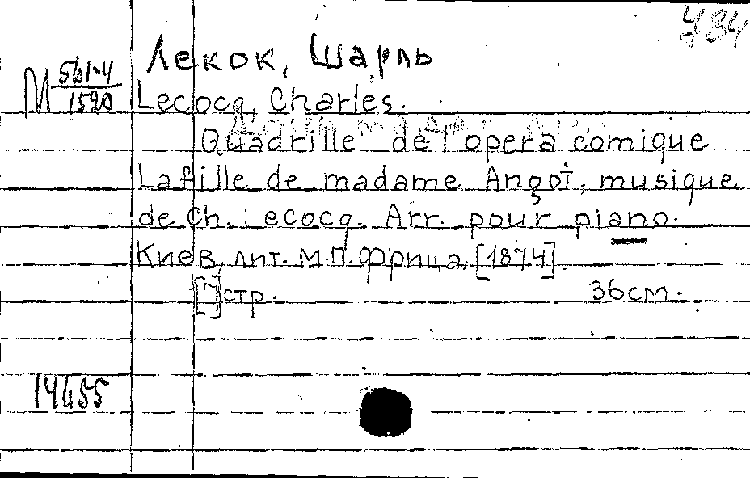 484
Лекок, Шарль
М 561-4/1590
Lecocq, Charles.
Quadrille de l'opera comique
La fille de madame Angot, musique
de Ch. Lecocq. Arr. pour piano.
Киев, лит. М.П. Фрица, [1874].
[ ] стр. 36см.
14655